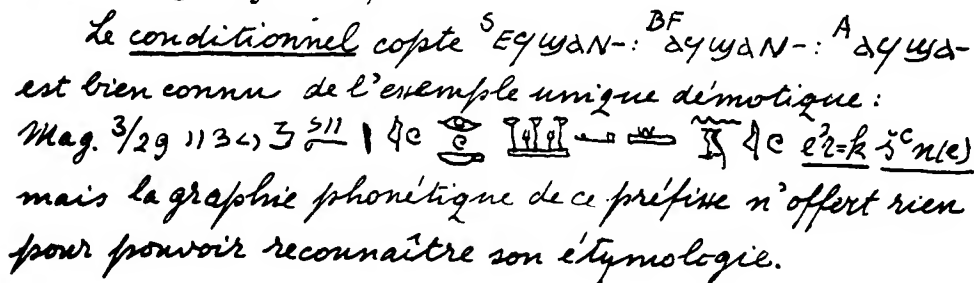 Le conditionnel copte ˢⲉϥϣⲁⲛ-: ᴮꟳⲁϥϣⲁⲛ-: ᴬⲁϥϣⲁ-
est bien connu de l'exemple unique démotique:
Mag. 3/29
mais la graphie phonétique de ce préfixe n'offert rien
pour pouvoir reconnaître son étymologie.